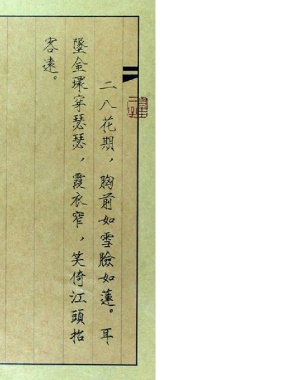 二八花期，胸前如雪臉如蓮。耳
墜金環穿瑟瑟，霞衣窄，笑倚江頭招
客遠。